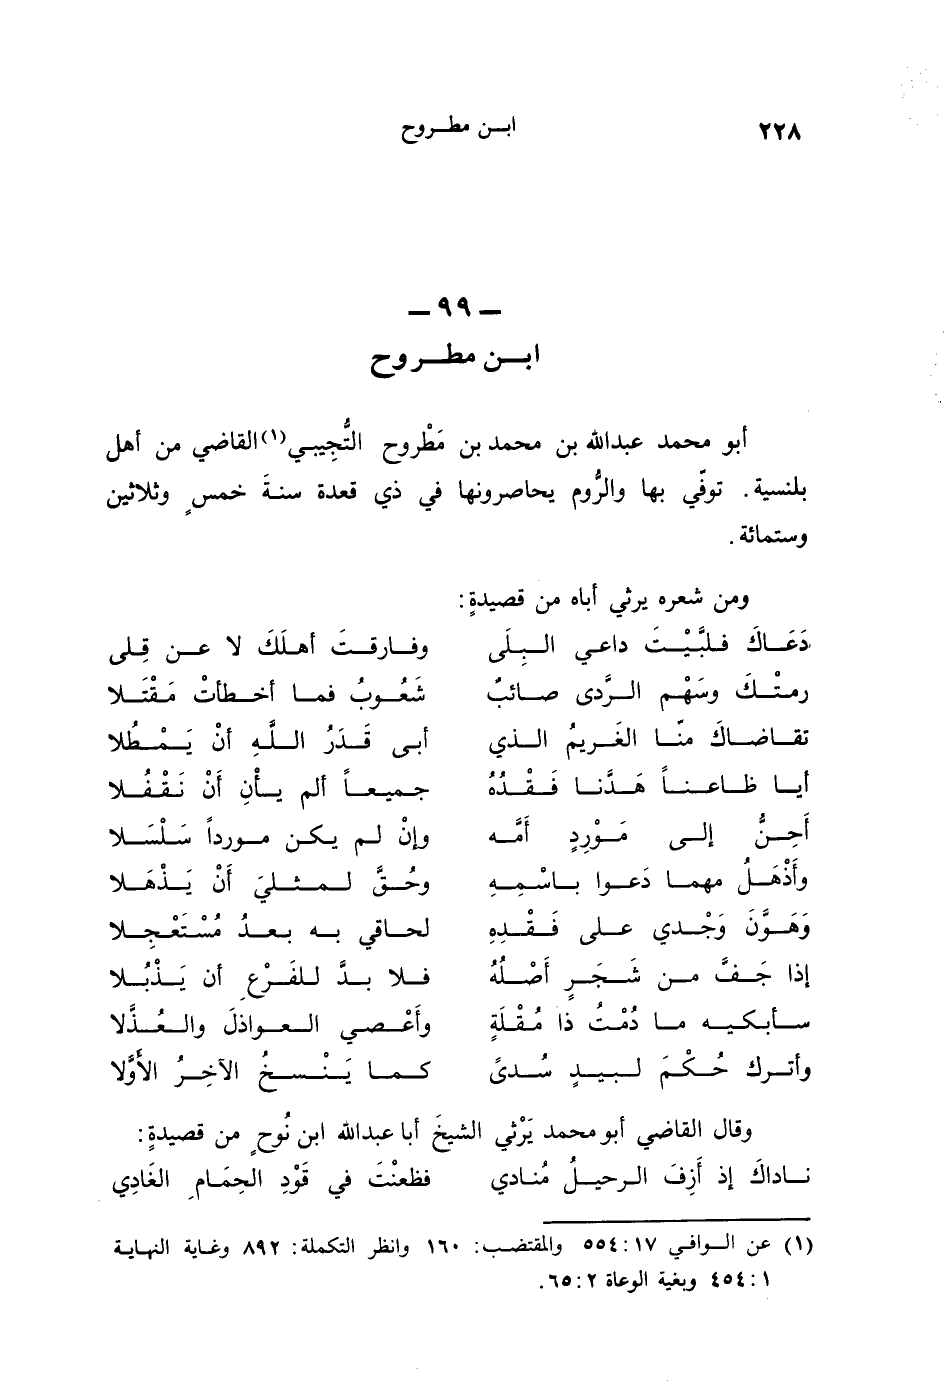 ٢٢٨ ابن مطروح
ـ ٩٩ ـ
ابن مطروح
أبو محمد عبدالله بن محمد بن مَطْروح التُّجِيبي(١) القاضي من أهل
بلنسية. توفّي بها والرُّوم يحاصرونها في ذي قعدة سنةَ خمسٍ وثلاثين
وستمائة.
ومن شعره يرثي أباه من قصيدةٍ:
دَعَاكَ فلبَّيْتَ داعي البِلَى وفارقتَ أهلَكَ لا عن قِلى
رمتْكَ وسَهْم الرَّدى صائبُ شَعُوبُ فما أخطأتْ مَقْتَلا
تقاضاكَ منّا الغَريمُ الذي أبى قَدَرُ اللَّهِ أنْ يَمْطُلا
أيا ظاعناً هَدَّنا فَقْدُهُ جميعاً ألم يأنِ أنْ نَقْفُلا
أَحِنُّ إلى مَوْرِدٍ أمَّه وإنْ لم يكن مورداً سَلْسَلا
وأَذْهَلُ مهما دَعوا باسْمِهِ وحُقَّ لمثليَ أنْ يَذْهَلا
وَهَوَّنَ وَجْدي على فَقْدِهِ لحاقي بِه بعدُ مُسْتَعْجِلا
إذا جَفَّ من شَجَرٍ أصْلُهُ فلا بدَّ للفَرْعِ أن يَذْبُلا
سأبكيه ما دُمْتُ ذا مُقْلَةٍ وأَعْصي العواذلَ والعُذَّلا
وأترك حُكْمَ لبيدٍ سُدىً كما يَنْسخُ الآخِرُ الأَوَّلا
وقال القاضي أبو محمد يَرْثي الشيخَ أبا عبدالله ابن نُوحٍ من قصيدةٍ:
ناداكَ إذ أَزِفَ الرحيلُ مُنادي فظعنْتَ في قَوْدِ الحِمَامِ الغَادِي
(١) عن الوافي ١٧: ٥٥٤ والمقتضب: ١٦٠ وانظر التكملة: ٨٩٢ وغاية النهاية
١: ٤٥٤ وبغية الوعاة ٢: ٦٥.